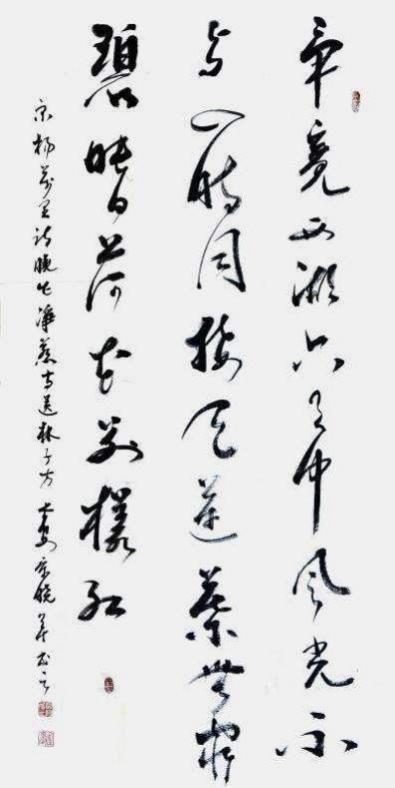 畢竟西湖六月中风光不
与四时同接天莲葉無窮
碧映日荷花别樣红
宋杨万里诗晓出净慈寺送林子方